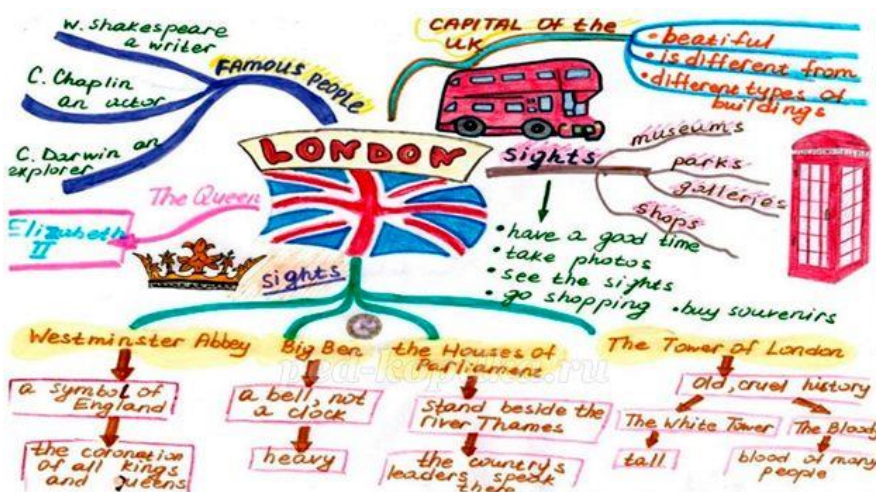 W. Shakespeare
a writer
C. Chaplin
an actor
C. Darwin an
explorer
FAMOUS PEOPLE
CAPITAL OF the
UK
• beatiful
• is different from
• different types of
buildings
LONDON
sights
museums
parks
galleries
shops
The Queen
Elizabeth
II
• have a good time
• take photos
• see the sights
• go shopping • buy souvenirs
sights
Westminster Abbey
a symbol of
England
the coronation
of all kings
and queens
Big Ben
a bell, not
a clock
heavy
the Houses of
Parliament
stand beside the
river Thames
the country's
leaders speak
there
The Tower of London
old, cruel history
The White Tower
tall
The Bloody
blood of many
people